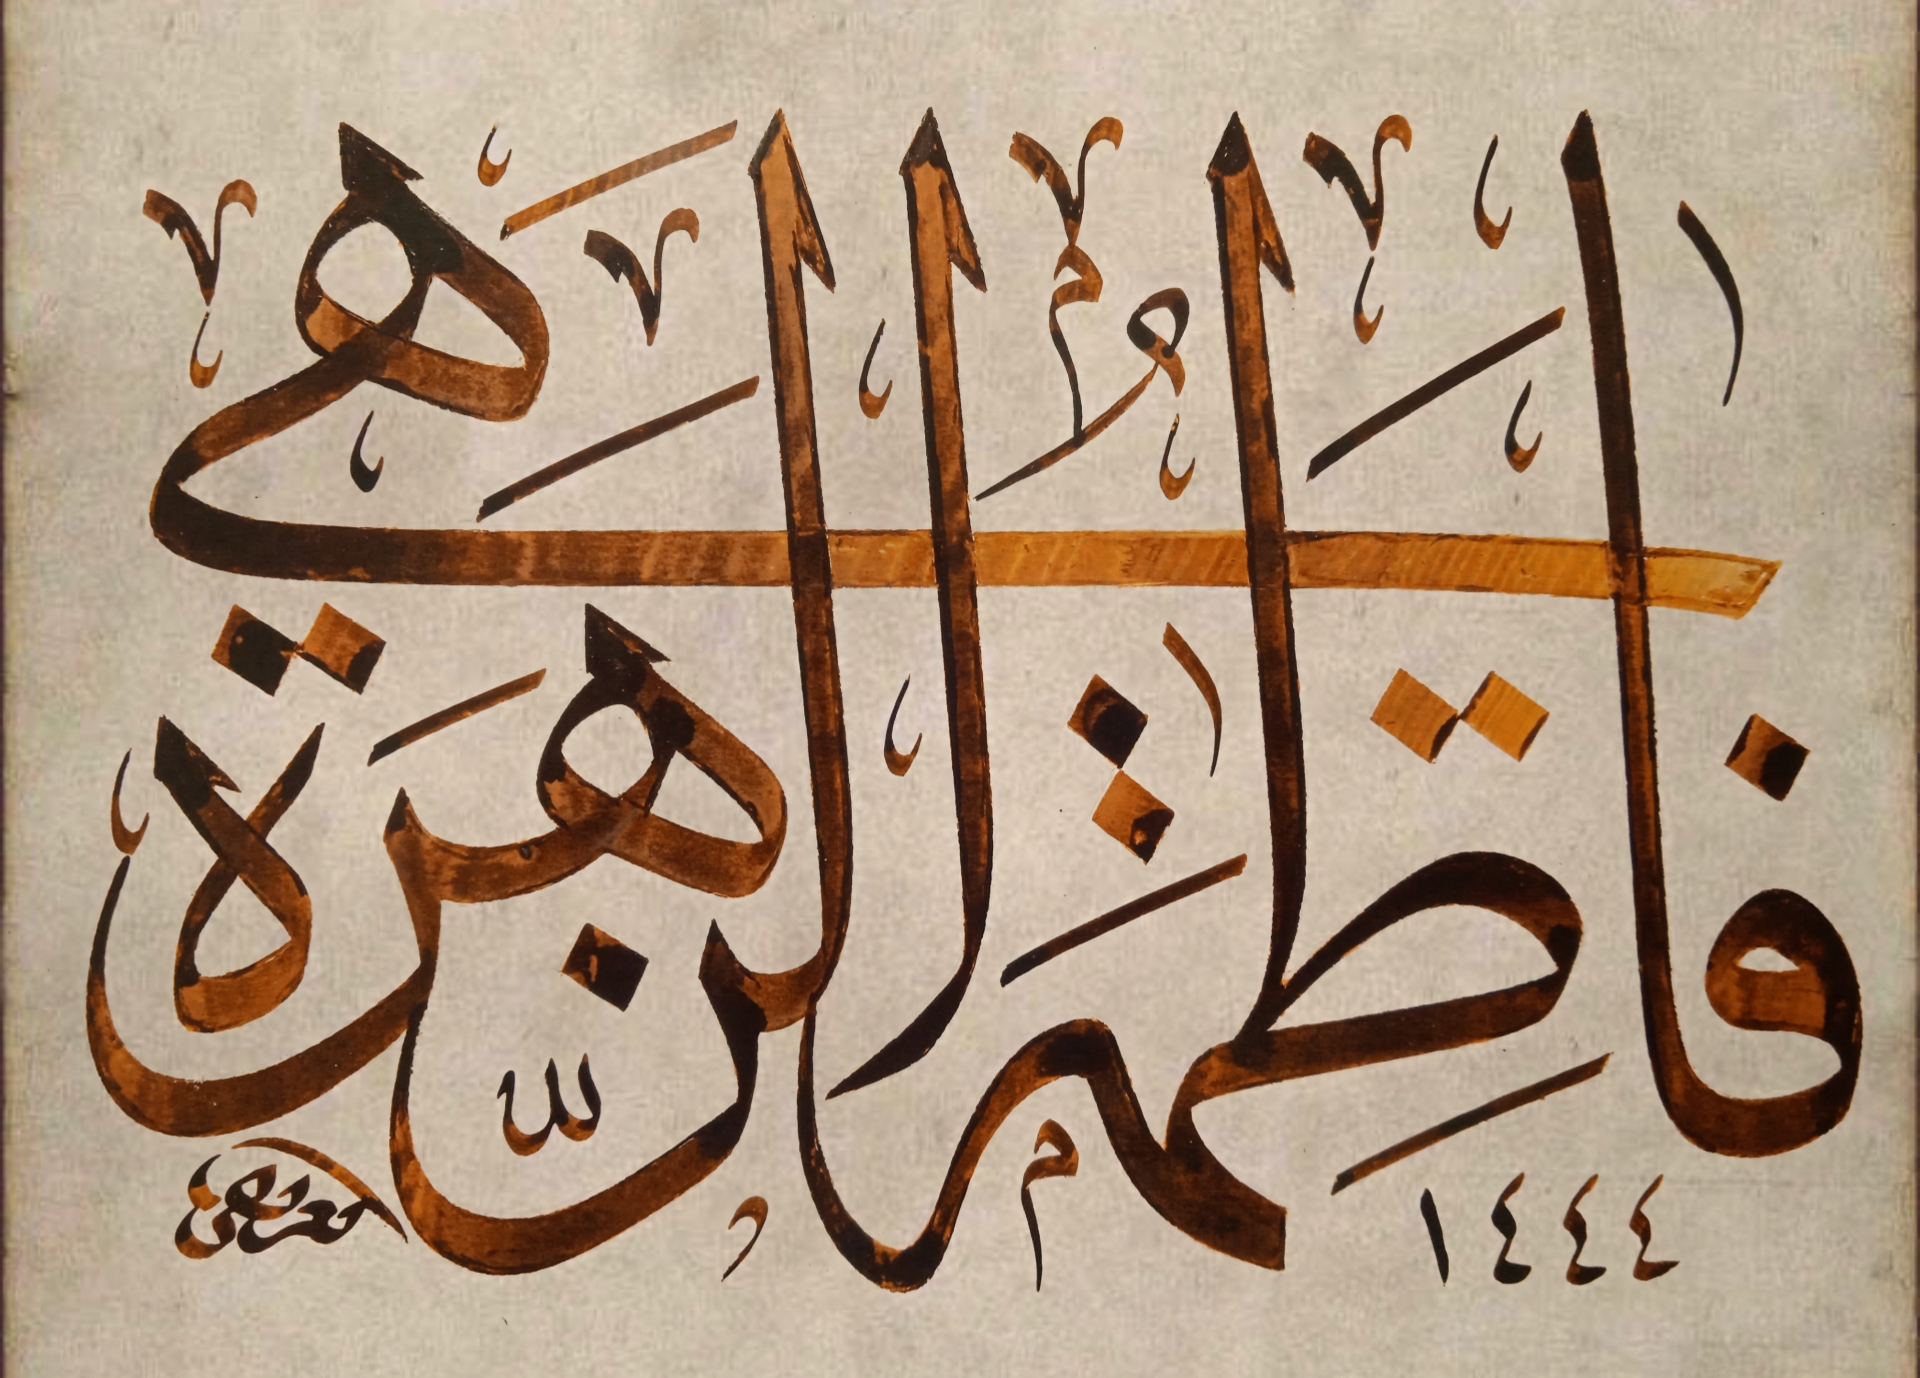 فاطمة الزهرة هي
١٤٤٤